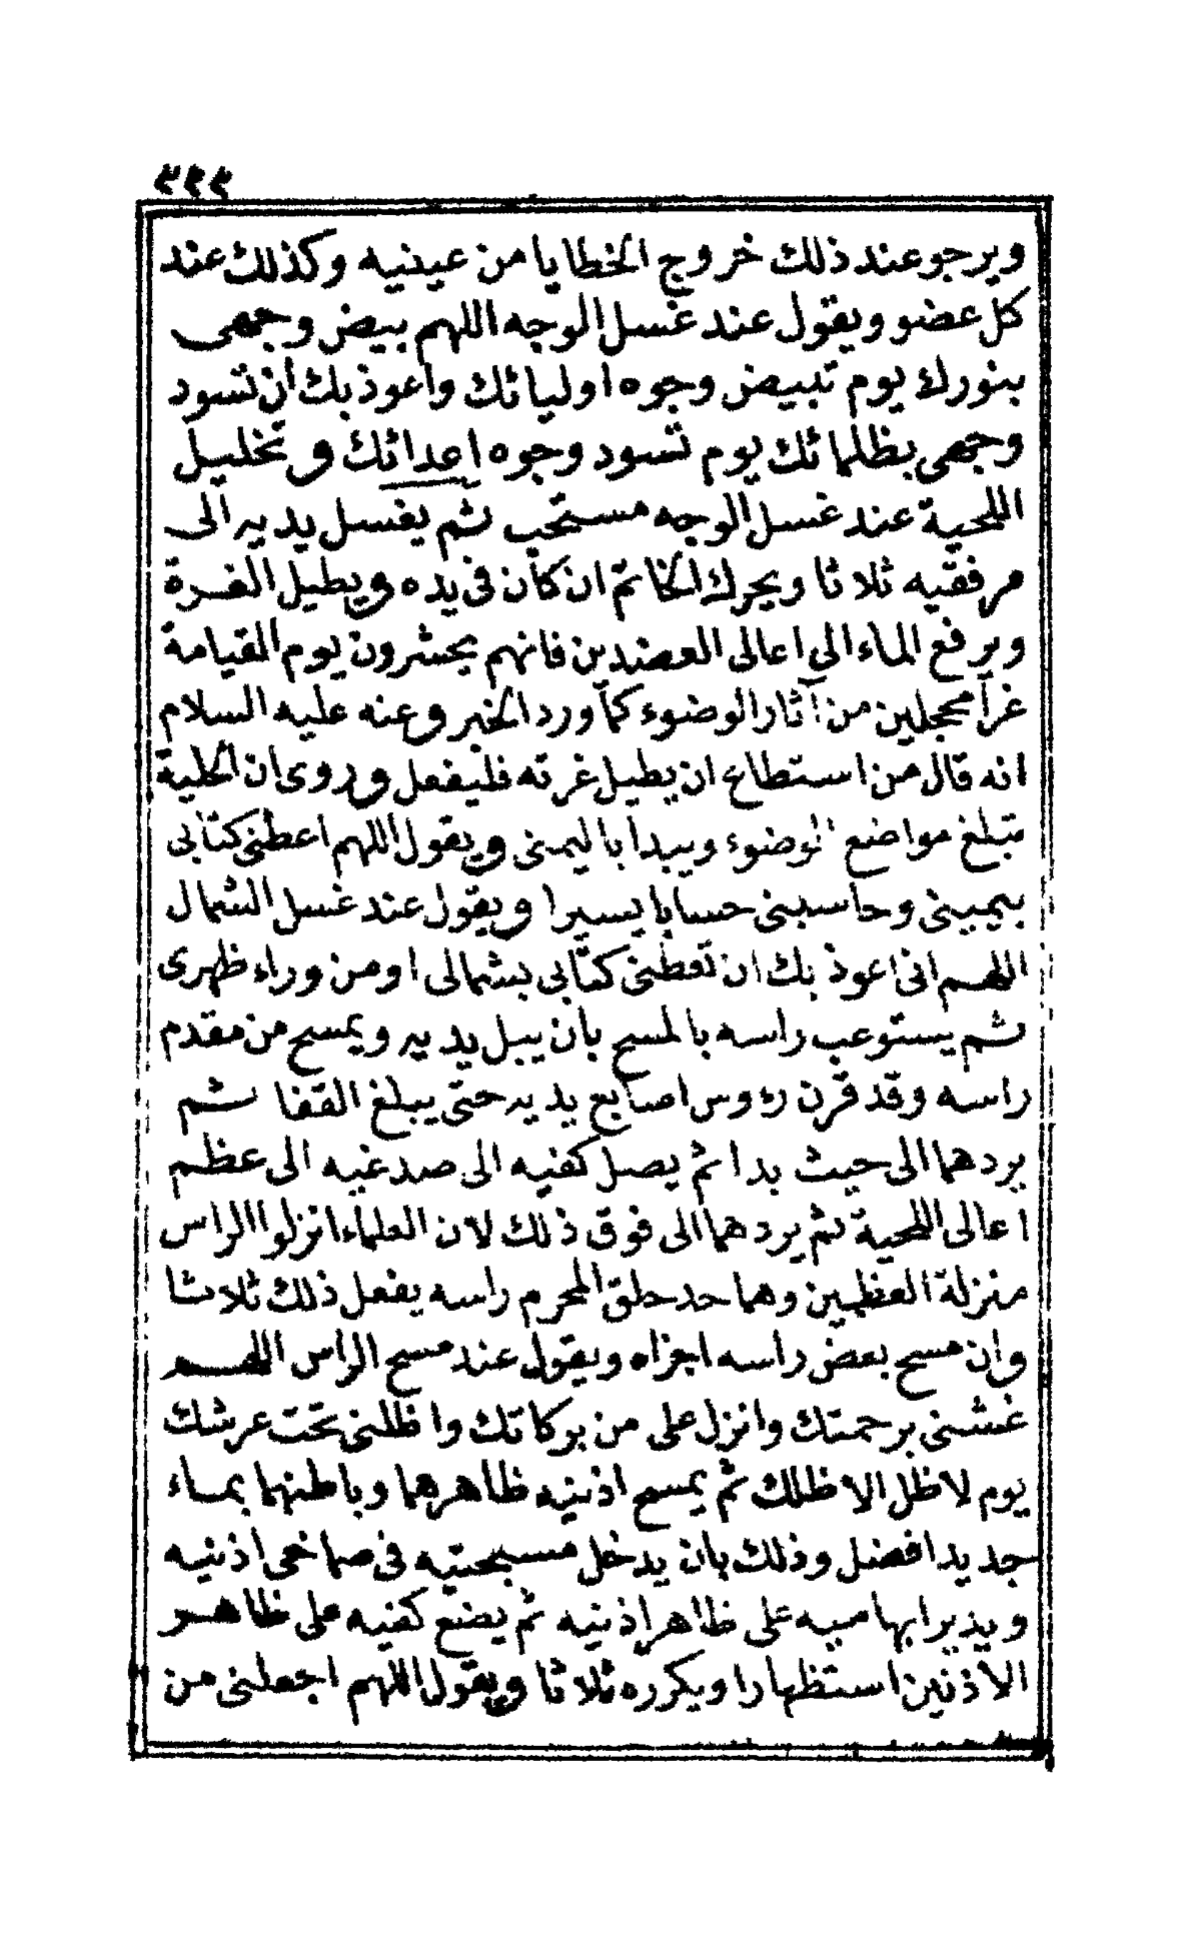 ٣٢٣
ويرجو عند ذلك خروج الخطايا من عينيه وكذلك عند
كل عضو ويقول عند غسل الوجه اللهم بيض وجهى
بنورك يوم تبيض وجوه اوليائك واعوذ بك ان تسود
وجهى بظلمائك يوم تسود وجوه اعدائك وتخليل
اللحية عند غسل الوجه مستحب ثم يغسل يديه الى
مرفقيه ثلاثا ويحرك الخاتم ان كان فى يده ويطيل الغرة
ويرفع الماء الى اعالى العضدين فانهم يحشرون يوم القيامة
غرا محجلين من آثار الوضوء كما ورد الخبر وعنه عليه السلام
انه قال من استطاع ان يطيل غرته فليفعل وروى ان الحلية
تبلغ مواضع الوضوء ويبدا باليمنى ويقول اللهم اعطنى كتابى
بيمينى وحاسبنى حسابا يسيرا ويقول عند غسل الشمال
اللهم انى اعوذ بك ان تعطنى كتابى بشمالى او من وراء ظهرى
ثم يستوعب راسه بالمسح بان يبل يديه ويمسح من مقدم
راسه وقد قرن رؤوس اصابع يديه حتى يبلغ القفا ثم
يردهما الى حيث بدا ثم يصل كفيه الى صدغيه الى عظم
اعالى اللحية ثم يردهما الى فوق ذلك لان العلماء انزلوا الراس
منزلة العظمين وهما حد حلق المحرم راسه يفعل ذلك ثلاثا
وان مسح بعض راسه اجزاه ويقول عند مسح الراس اللهم
غشنى برحمتك وانزل على من بركاتك واظلنى تحت عرشك
يوم لا ظل الا ظلك ثم يمسح اذنيه ظاهرهما وباطنهما بماء
جديد افضل وذلك بان يدخل مسبحتيه فى صماخى اذنيه
ويدير ابهاميه على ظاهر اذنيه ثم يضع كفيه على ظاهر
الاذنين استظهارا ويكرره ثلاثا ويقول اللهم اجعلنى من